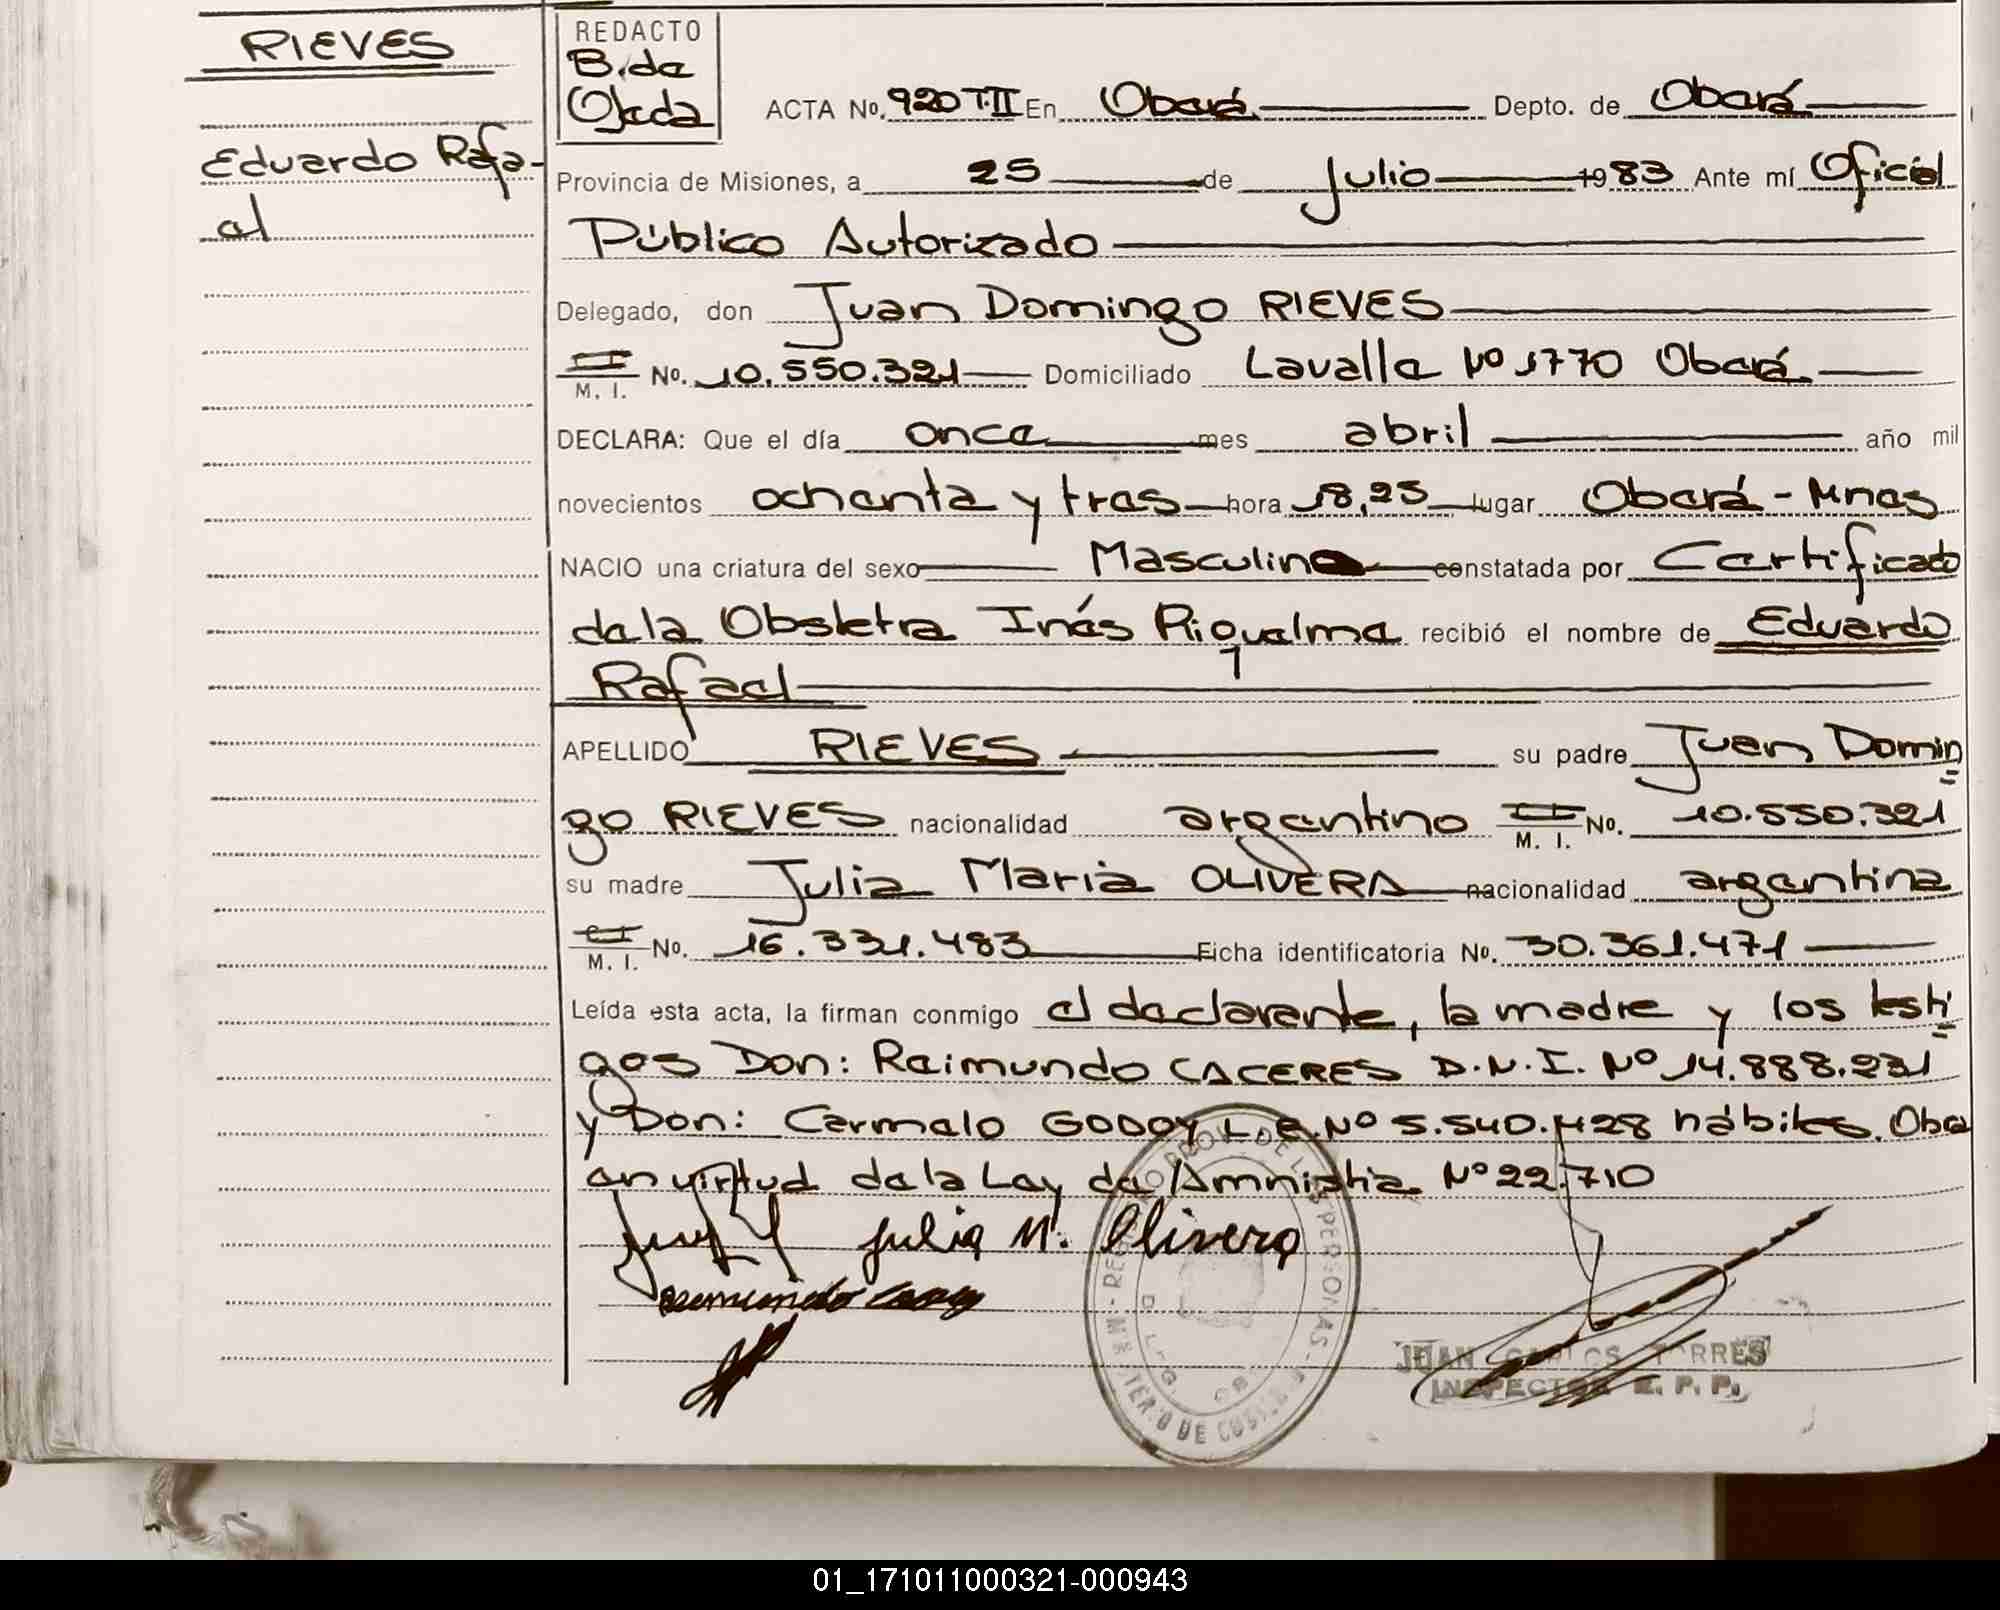 RIEVES
Eduardo Rafa-
el
REDACTO
B. de
Ojeda
ACTA No. 920 T.II En Oberá Depto. de Oberá
Provincia de Misiones, a 25 de Julio 1983 Ante mí Oficial
Público Autorizado
Delegado, don Juan Domingo RIEVES
M. I. No. 10.550.321 Domiciliado Lavalle Nº 1770 Oberá
DECLARA: Que el día once mes abril año mil
novecientos ochenta y tres hora 18,25 lugar Oberá - Mnes
NACIO una criatura del sexo Masculino constatada por Certificado
de la Obstetra Inés Riquelme recibió el nombre de Eduardo
Rafael
APELLIDO RIEVES su padre Juan Domin
go RIEVES nacionalidad argentino C I M. I. No. 10.550.321
su madre Julia Maria OLIVERA nacionalidad argentina
C I M. I. No. 16.331.483 Ficha identificatoria No. 30.361.471
Leída esta acta, la firman conmigo el declarante, la madre y los testi
gos Don: Raimundo CACERES D.N.I. Nº 14.888.231
y Don: Carmelo GODOY L.e. Nº 5.540.428 hábiles. Obe
en virtud de la Ley de Amnistia Nº 22.710
Julia M. Olivera
JUAN CARLOS TORRES
INSPECTOR R. P. P.
01_171011000321-000943